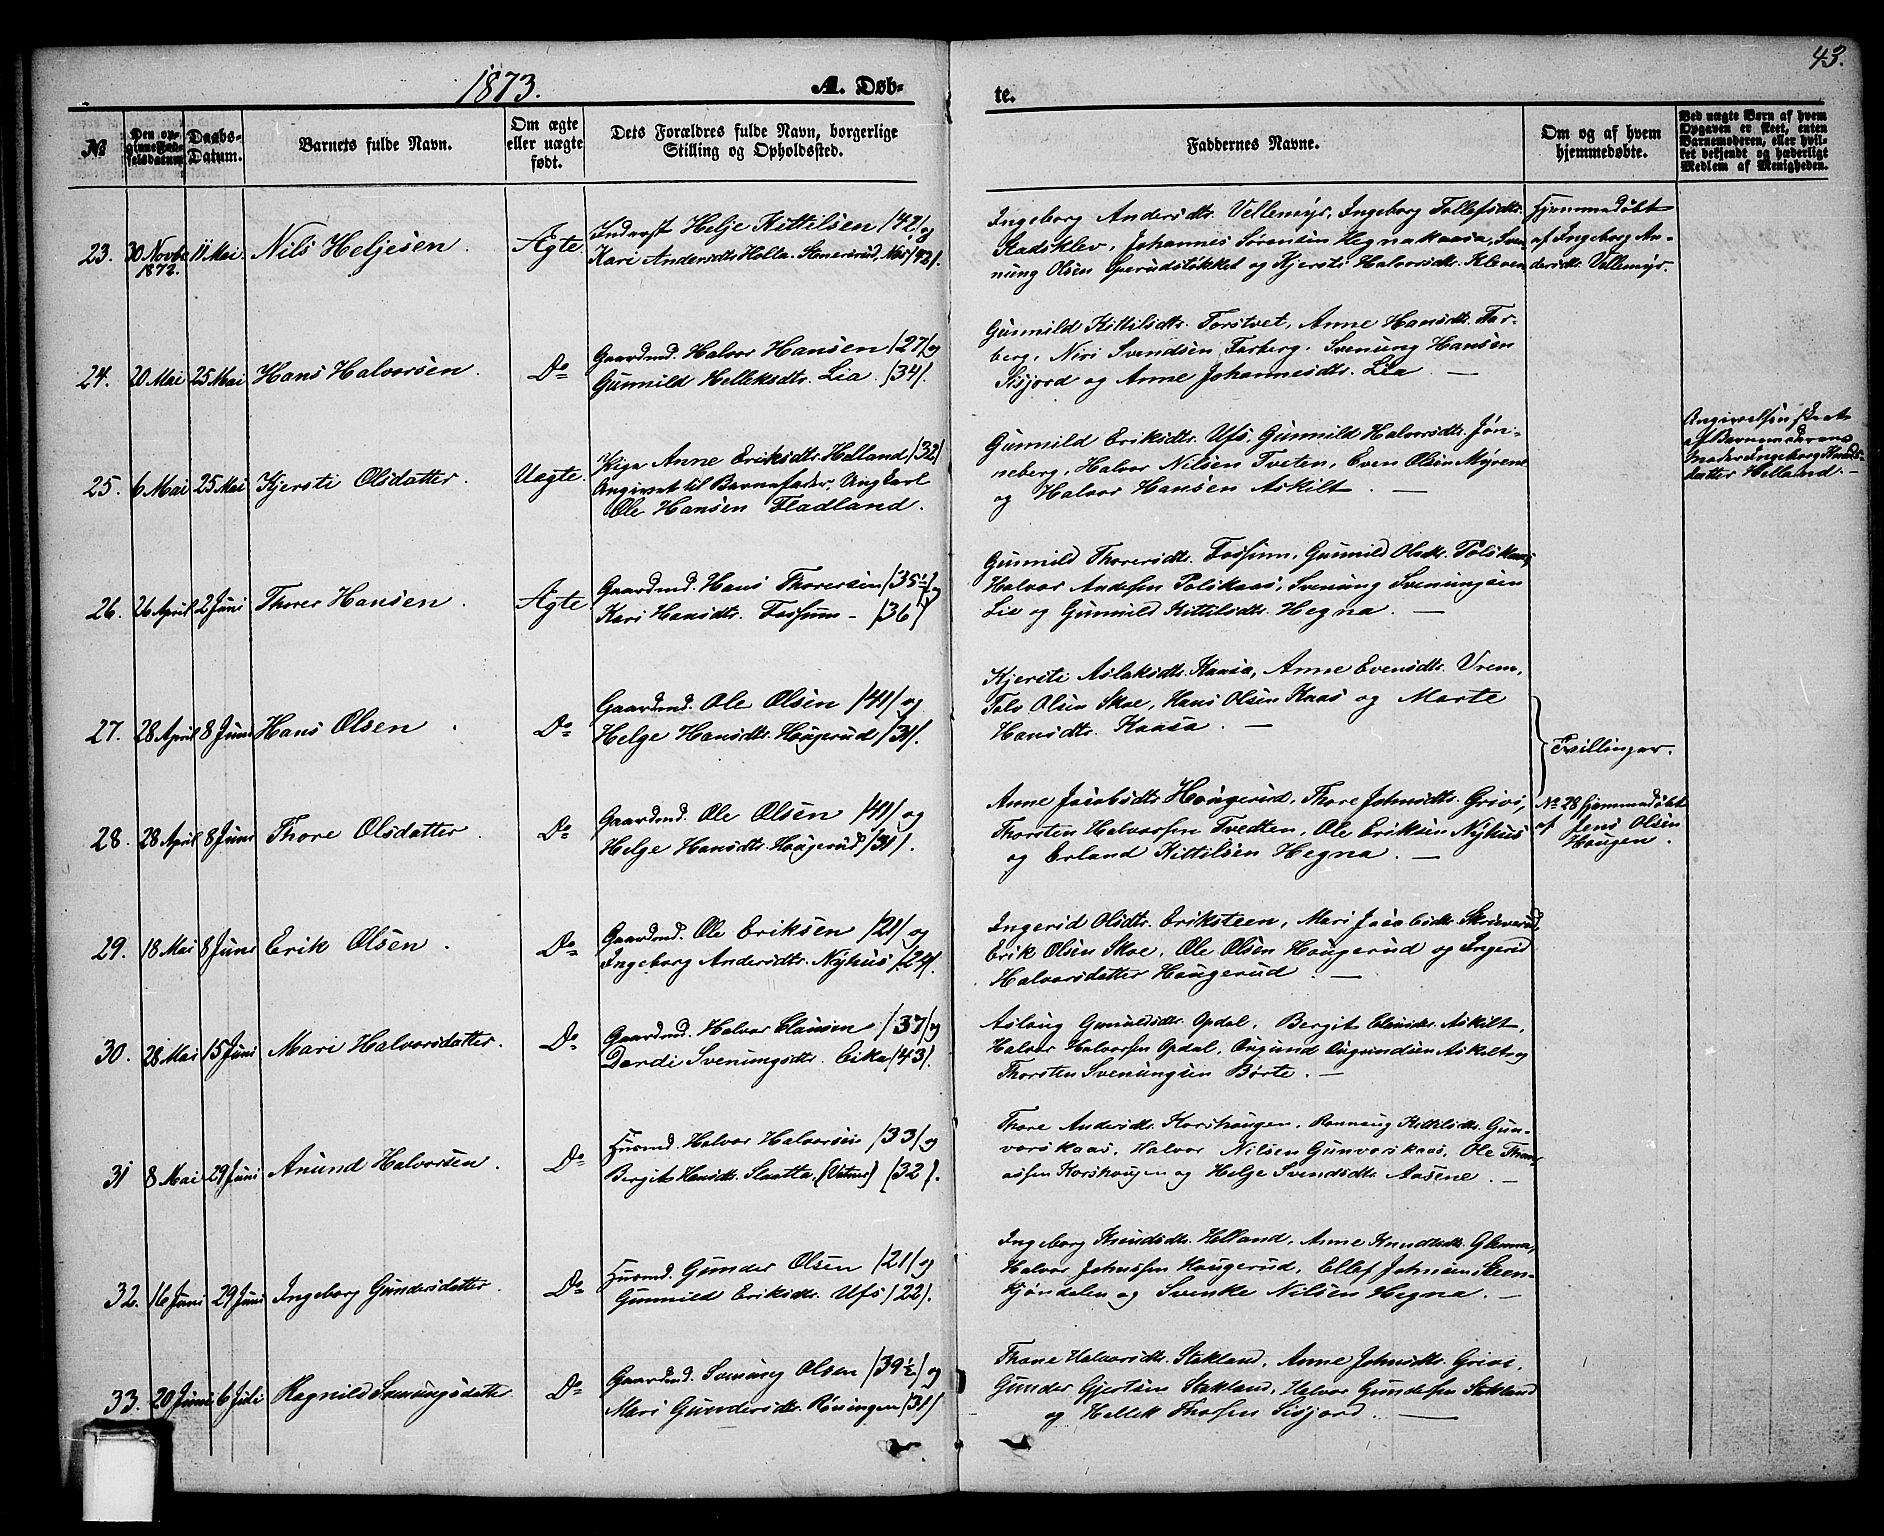 1873.
A. Døb-
te.
43.
№
Den op-
givne Fød-
selsdatum
Daabs-
Datum.
Barnets fulde Navn.
Om ægte
eller uægte
født.
Dets Forældres fulde Navn, borgerlige
Stilling og Opholdssted.
Faddernes Navne.
Om og af hvem
hjemmedøbte.
Ved uægte Børn af hvem
Opgaven er skeet, enten
Barnemoderen, eller hvil-
ket bekjendt og hæderligt
Medlem af Menigheden.
23. 30 Novbr 1872. 11 Mai Nils Heljesen. Ægte
Inderst Helje Kittilsen /42/ og
Kari Andersdtr. Holla. /42/.
Ingeborg Andersdtr. Vellemyr, Ingeborg Tollefsdtr.
Stadsklev, Johannes Sørensen Hegnakaasa, Sve-
nung Olsen og Kjersti Halvorsdtr. Kleven
Hjemmedøbt
af Ingeborg An-
dersdtr. Vellemyr.
24. 20 Mai 25 Mai Hans Halvorsen. Do
Gaardmd. Halvor Hansen /27/ og
Gunnild Helleksdtr. Lia. /34/.
Gunnild Kittilsdtr. Torstvet, Anne Hansdtr. Far-
berg, Niri Svendsen Farberg, Svenung Hansen
Sisjord og Anne Johannesdtr. Lia. —
25. 6 Mai 25 Mai Kjersti Olsdatter. Uægte.
Pige Anne Eriksdtr. Helland /32/
Angivet til Barnefader, Ungkarl
Ole Hansen Fladland.
Gunnild Eriksdtr. Ufs, Gunnild Halvorsdtr. Jøn-
neberg, Halvor Nilsen Tveten, Even Olsen Myrene
og Halvor Hansen Askilt —
Angivelsen skeet
af Barnemoderens
Moder Ingeborg Knuds-
datter Helland. —
26. 26 April 2 Juni Thorer Hansen. Ægte
Gaardmd. Hans Thorersen /35½/ og
Kari Hansdtr. Fossum — /36/
Gunnild Thorersdtr. Fossum, Gunnild Olsdtr. Polskaas,
Halvor Andersen Polskaas, Svenung Svenungsen
Lia og Gunnild Kittilsdtr. Hegna. —
27. 28 April 8 Juni Hans Olsen. Do
Gaardmd. Ole Olsen /41/ og
Helge Hansdtr. Haugerud /31/.
Kjersti Aslaksdtr. Kaasa, Anne Evensdtr. Vrem,
Tolv Olsen Skoe, Hans Olsen Kaas og Marte
Hansdtr. Kaasa. —
Tvillinger.
28. 28 April 8 Juni Thore Olsdatter. Do
Gaardmd. Ole Olsen /41/ og
Helge Hansdtr. Haugerud /31/.
Anne Jacobsdtr. Haugerud, Thore Johnsdtr. Grivi,
Thorsten Halvorsen Tvedten, Ole Eriksen Nyhus
og Erland Kittilsen Hegna. —
No 28 hjemmedøbt
af Jens Olsen
Haugen.
29. 18 Mai 8 Juni Erik Olsen. Do
Gaardmd. Ole Eriksen /21/ og
Ingeborg Andersdtr. Nyhus /24/.
Ingerid Olsdtr. Eriksteen, Mari Jacobsdtr. Skriverud,
Erik Olsen Skoe, Ole Olsen Haugerud og Ingerid
Halvorsdatter Haugerud. —
30. 28 Mai 15 Juni Mari Halvorsdatter. Do
Gaardmd. Halvor Clausen /37/ og
Dordi Svenungsdtr. Eika /43/.
Aslaug Gunuldsdtr. Opdal, Bergit Clausdtr. Askilt,
Halvor Halvorsen Opdal, Augund Augundsen Askilt og
Thorsten Svenungsen Børte. —
31 8 Mai 29 Juni Anund Halvorsen. Do
Husmd. Halvor Halvorsen /33/ og
Bergit Hansdtr. Slaatta, /32/.
Thore Andersdtr. Korshaugen, Rønnaug Kittilsdtr. Gun-
vorskaas, Halvor Nilsen Gunvorskaas, Ole Thom-
assen Korshaugen og Helge Svendsdtr. Aasene. —
32. 16 Juni 29 Juni Ingeborg Gundersdatter. Do
Husmd. Gunder Olsen /21/ og
Gunnild Eriksdtr. Ufs /22/.
Ingeborg Knudsdtr. Helland, Anne Knudsdtr. Glenna,
Halvor Johnssen Haugerud, Ellef Johnsen Steen-
kjøndalen og Svenke Nilsen Hegna. —
33. 20 Juni 6 Juli Ragnild Svenungsdatter. Do
Gaardmd. Svenung Olsen /39½/ og
Mari Gundersdtr. Risingen /31/
Thone Halvorsdtr. Stakland, Anne Johnsdtr. Grivi,
Gunder Gjertsen Stakland, Halvor Gundersen Stakland
og Hellek Thorsen Sisjord. —